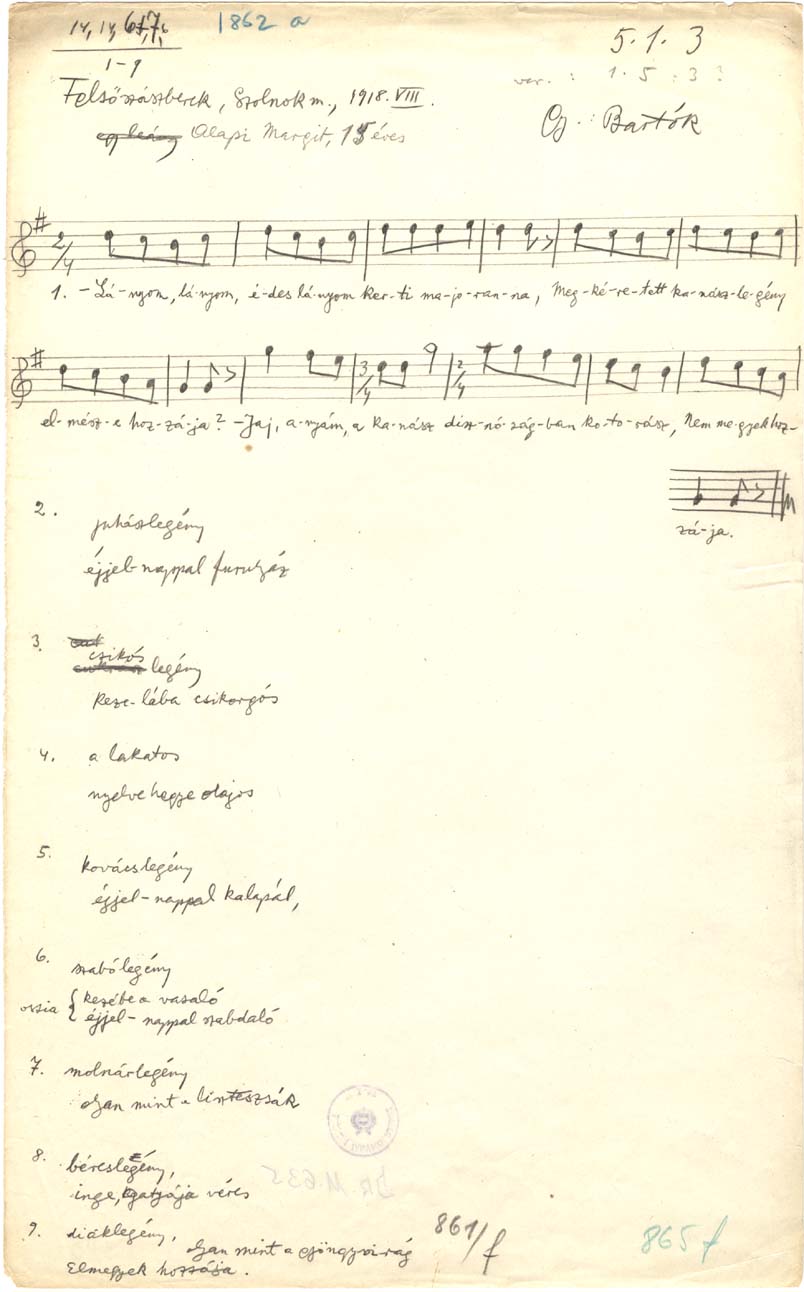 14, 14, 6+7,7, 6 1862 a 5.1.3
1–9 var. : 1.5.3?
Felsőszászberek, Szolnok m., 1918. VIII. Gy. : Bartók
egy leány Alapi Margit, 15 éves
2/4
1. – Lá-nyom, lá-nyom, é-des lá-nyom ker-ti ma-jo-ran-na, Meg-ké-re-tett ka-nász-le-gény
3/4 2/4
el-mész-e hoz-zá-ja? – Jaj, a-nyám, a ka-nász disz-nó-ság-ban ko-to-rász, Nem me-gyek hoz-
zá-ja.
2. juhászlegény
éjjel-nappal furulyáz
3. csikós
legény
keze-lába csikorgós
4. a lakatos
nyelve hegye olajos
5. kovácslegény
éjjel-nappal kalapál,
6. szabólegény
ossia { kezébe a vasaló
éjjel-nappal szabdaló
7. molnárlegény
olyan mint a liszteszsák
8. béreslegény,
inge, gatyája véres
9. diáklegény,
olyan mint a gyöngyvirág 861/f 865 f
Elmegyek hozzája.